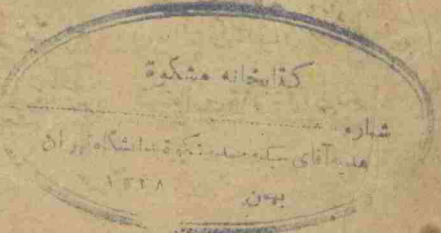 کتابخانه مشکوة
شماره
هدیه آقای سید محمد مشکوة بدانشگاه تهران
۱۳۲۸
بهمن